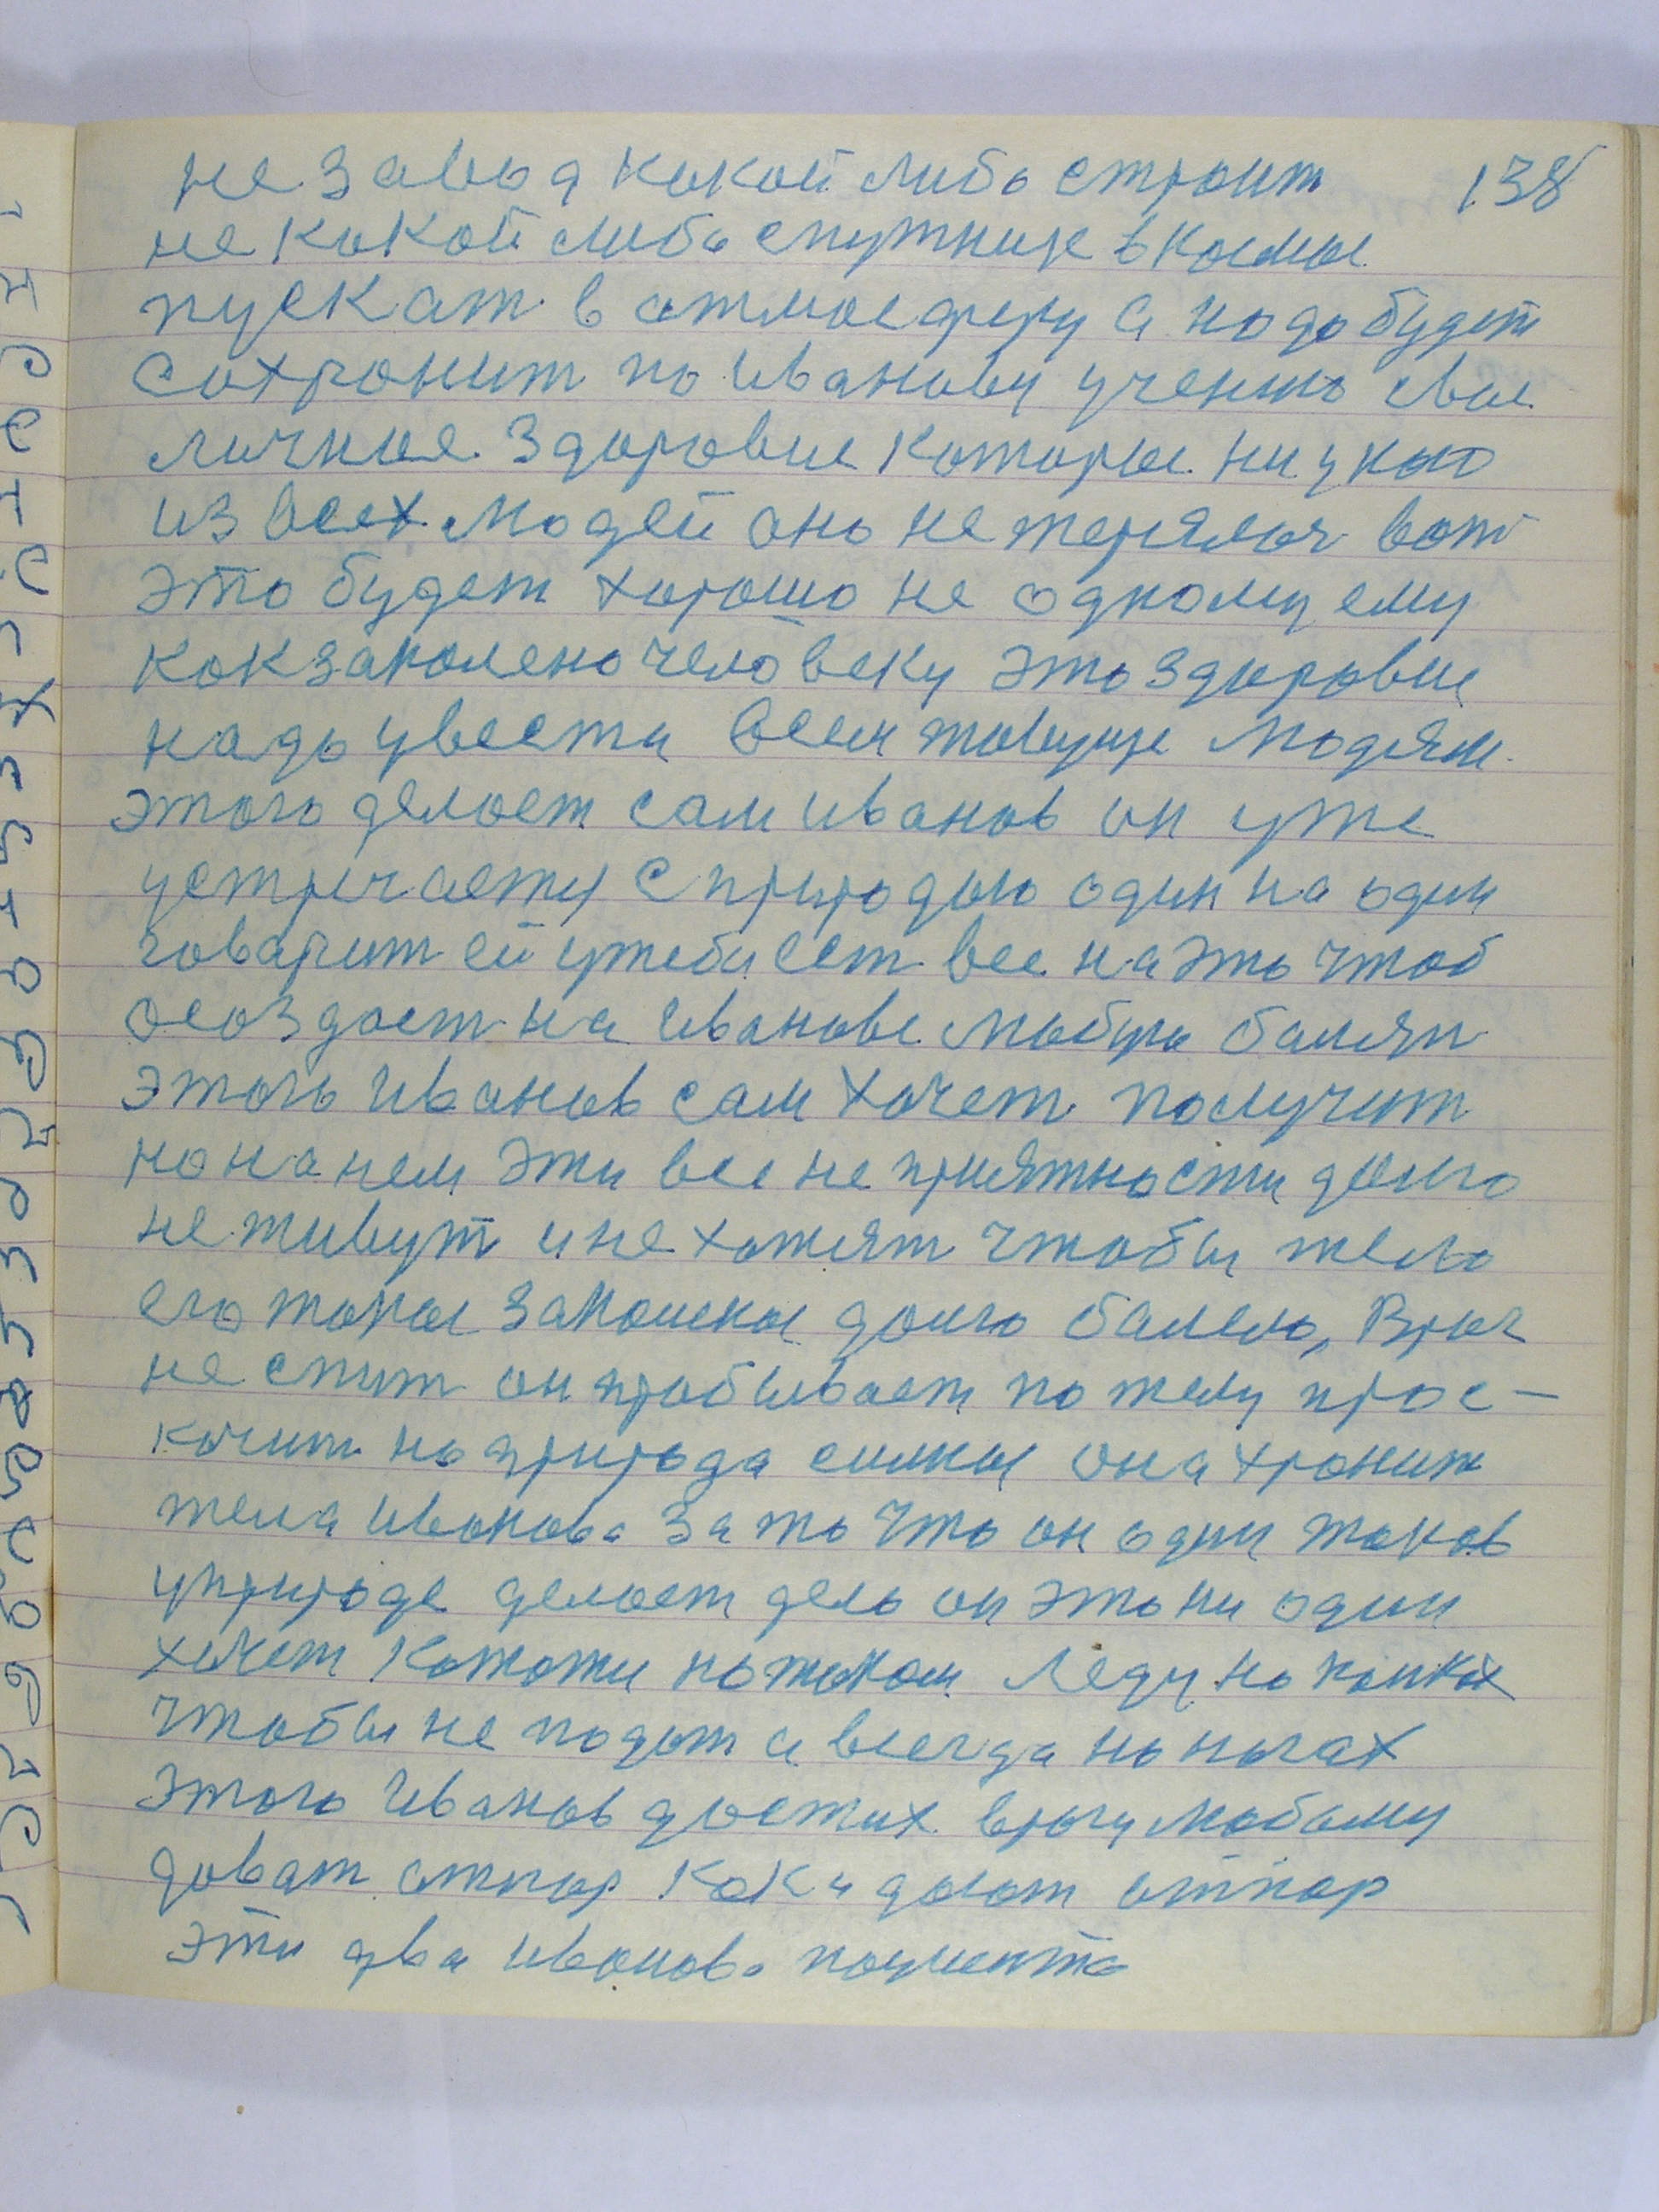 138
не завод какой либо строит
не какой либо спутник в космос
пускат в атмосферу а надо будет
сохранит по Иванову учению свое
личное здоровие которое ни у кого
из всех людей оно не терялоч вот
это будет хорошо не одному ему
как закалено человеку это здоровие
надо увести всем живуще людям
этого делает сам Иванов он уже
устричаету с природою один на один
говарит ей у тебя ест все на это чтоб
осоздает на Иванове любую балязн
этого Иванов сам хочет получит
но на нем эти все не приятности долго
не живут и не хотят чтобы тело
его такое закаленое долго балело, Враг
не спит он пробывает по телу прос-
кочит но природа силная она хранит
тела Иванова за то что он один таков
у природе делает дело он это ни один
хочет кататжи по такому леду на конках
чтобы не подат а всегда на ногах
этого Иванов достих врагу любому
дават отпор как и дают отпор
эти два Иванова